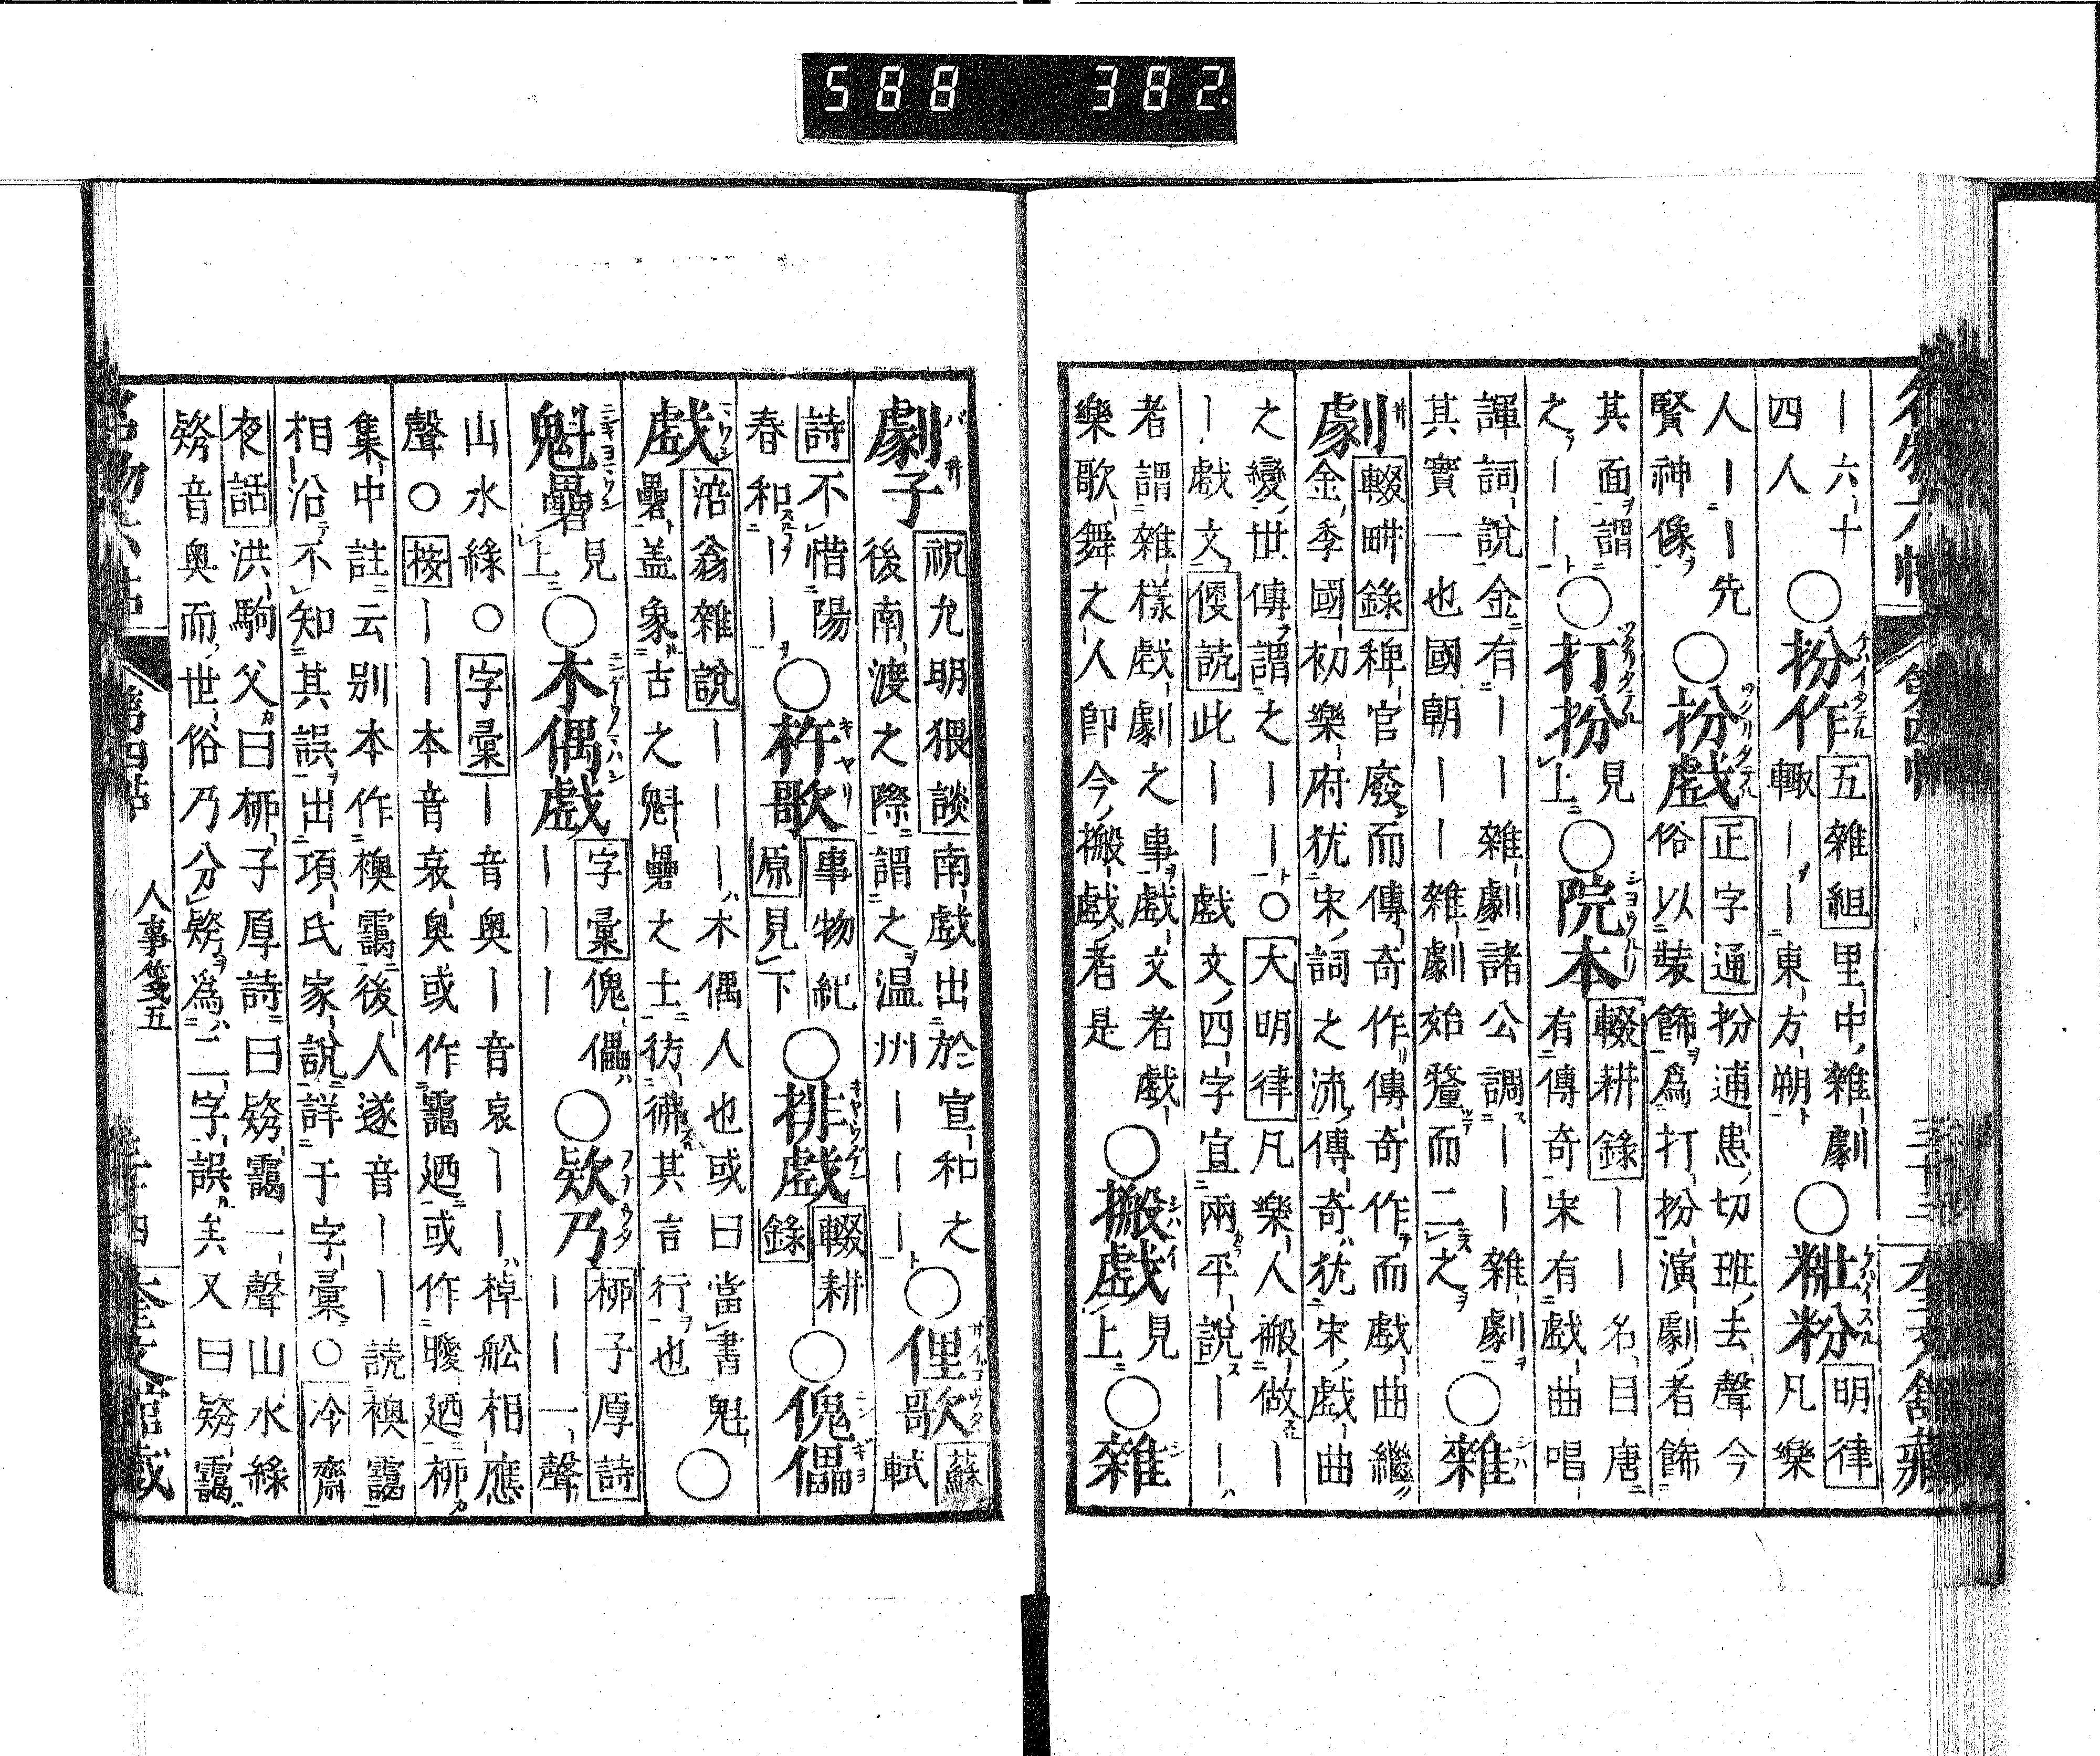 名物六帖 第四帖 三十三 奎文館藏
｜六十四人○扮作五雜組里中雜劇輙｜｜東方朔○粧粉明律凡樂
人｜｜先賢神像○扮戲正字通扮逋患切班去聲今俗以裝飾為打扮演劇者飾
其面謂之｜｜○打扮見上○院本輟耕錄｜｜名目唐有傳奇宋有戲曲唱
諢詞說金有｜｜雜劇諸公調｜｜雜劇其實一也國朝｜｜雜劇始釐而二之○雜
劇輟畊錄稗官廢而傳奇作傳奇作而戲曲繼金季國初樂府犹宋詞之流傳奇犹宋戲曲
之變世傳謂之｜｜○大明律凡樂人搬做｜｜戲文傁読此｜｜戲文四字宜兩平說｜｜
者謂雜樣戲劇之事戲文者戲樂歌舞之人卽今搬戲者是○搬戲見上○雜
劇子祝允明猥談南戲出於宣和之後南渡之際謂之温州｜｜｜○俚歌蘇軾
詩不惜陽春和｜｜○杵歌事物紀原見下○排戲輟耕錄○傀儡
戲涪翁雜說｜｜｜木偶人也或曰當書魁礨盖象古之魁礨之士彷彿其言行也○
魁礨見上○木偶戲字彙傀儡｜｜｜○欸乃柳子厚詩｜｜一聲
山水綠○字彙｜音奧｜音哀｜｜棹舩相應聲○按｜｜本音哀奧或作靄廼或作曖廼柳
集中註云別本作襖靄後人遂音｜｜読襖靄相沿不知其誤出項氏家說詳于字彙○冷齋
夜話洪駒父曰柳子厚詩曰欸靄一聲山水綠欸音奧而世俗乃分欸為二字誤矣又曰欸靄
名物六帖 第四帖 人事箋五 三十四 奎文館藏
588 382.